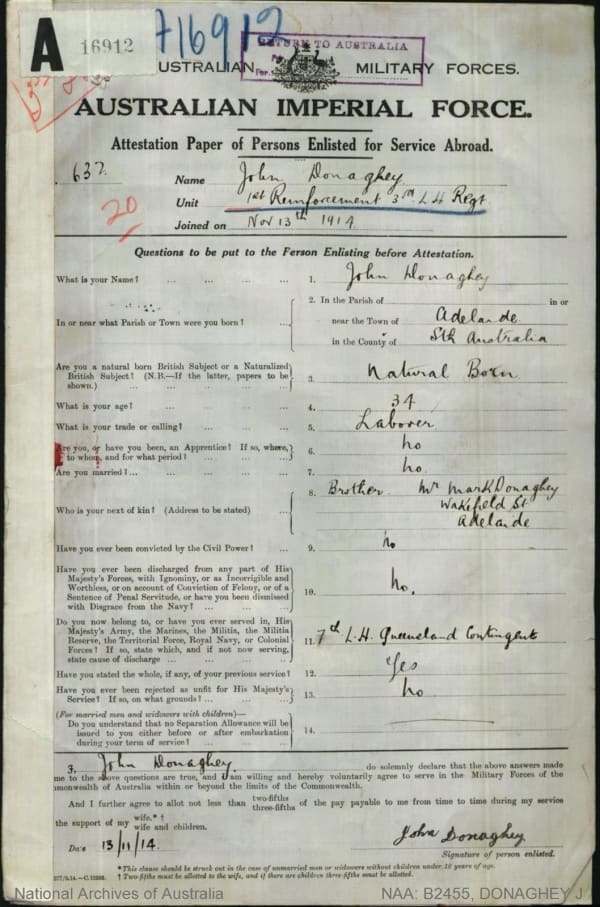 A 16912 716912
RETURN TO AUSTRALIA
USTRALIAN MILITARY FORCES.
AUSTRALIAN IMPERIAL FORCE.
Attestation Paper of Persons Enlisted for Service Abroad.
637. Name John Donaghey
20 Unit 1st Reinforcement 3rd L H Regt
Joined on Nov 13th 1914
Questions to be put to the Person Enlisting before Attestation.
What is your Name? ... ... ... ... 1. John Donaghey
2. In the Parish of in or
In or near what Parish or Town were you born? ... near the Town of Adelaide
in the County of Sth Australia
Are you a natural born British Subject or a Naturalized
British Subject? (N.B.—If the latter, papers to be
shown.) ... ... ... ... 3. Natural Born
What is your age? ... ... ... ... 4. 34
What is your trade or calling? ... ... ... 5. Laborer
Are you, or have you been, an Apprentice? If so, where,
to whom, and for what period? ... ... 6. no
Are you married?... ... ... ... 7. no.
8. Brother Mr Mark Donaghey
Who is your next of kin? (Address to be stated) ... Wakefield St
Adelaide
Have you ever been convicted by the Civil Power? ... 9. no
Have you ever been discharged from any part of His
Majesty's Forces, with Ignominy, or as Incorrigible and
Worthless, or on account of Conviction of Felony, or of a
Sentence of Penal Servitude, or have you been dismissed
with Disgrace from the Navy? ... ... ... 10. no.
Do you now belong to, or have you ever served in, His
Majesty's Army, the Marines, the Militia, the Militia
Reserve, the Territorial Force, Royal Navy, or Colonial
Forces? If so, state which, and if not now serving,
state cause of discharge ... ... ... ... 11. 7th L.H. Queensland Contingent
Have you stated the whole, if any, of your previous service? 12. Yes
Have you ever been rejected as unfit for His Majesty's
Service? If so, on what grounds? ... ... 13. no
(For married men and widowers with children)—
Do you understand that no Separation Allowance will be
issued to you either before or after embarkation
during your term of service? ... ... 14.
I, John Donaghey, do solemnly declare that the above answers made
me to the above questions are true, and I am willing and hereby voluntarily agree to serve in the Military Forces of the
mmonwealth of Australia within or beyond the limits of the Commonwealth.
And I further agree to allot not less than two-fifths three-fifths of the pay payable to me from time to time during my service
the support of my wife.* † wife and children.
Date 13/11/14. John Donaghey
Signature of person enlisted.
*This clause should be struck out in the case of unmarried men or widowers without children under 18 years of age.
† Two-fifths must be allotted to the wife, and if there are children three-fifths must be allotted.
National Archives of Australia NAA: B2455, DONAGHEY J